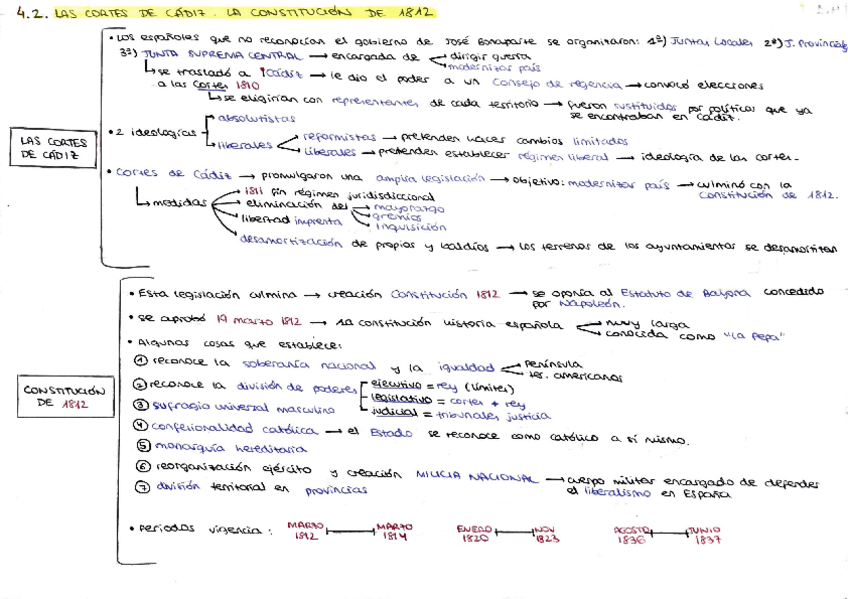 4.2. LAS CORTES DE CÁDIZ. LA CONSTITUCIÓN DE 1812
LAS CORTES DE CÁDIZ
• Los españoles que no reconocían el gobierno de José Bonaparte se organizaron: 1º) Juntas Locales 2º) J. Provinciales
3º) JUNTA SUPREMA CENTRAL → encargada de dirigir guerra
modernizar país
se trasladó a Cádiz → le dio el poder a un Consejo de regencia → convocó elecciones
a las Cortes 1810
se eligirían con representantes de cada territorio → fueron sustituidos por políticos que ya
se encontraban en Cádiz.
• 2 ideologías
absolutistas
liberales
reformistas → pretenden hacer cambios limitados
liberales → pretenden establecer régimen liberal → ideología de las cortes.
• Cortes de Cádiz → promulgaron una amplia legislación → objetivo: modernizar país → culminó con la
Constitución de 1812.
medidas
1811 fin régimen jurisdiccional
eliminación del → mayorazgo
gremios
inquisición
libertad imprenta
desamortización de propios y baldíos → los terrenos de los ayuntamientos se desamortizan
CONSTITUCIÓN DE 1812
• Esta legislación culmina → creación Constitución 1812 → se oponía al Estatuto de Bayona concedido
por Napoleón.
• Se aprobó 19 marzo 1812 → 1ª constitución historia española
muy larga
conocida como "la Pepa"
• Algunas cosas que establece:
① reconoce la soberanía nacional y la igualdad
península
ter. americanos
② reconoce la división de poderes
ejecutivo = rey (límites)
legislativo = cortes + rey
judicial = tribunales justicia
③ sufragio universal masculino
④ confesionalidad católica → el Estado se reconoce como católico a sí mismo.
⑤ monarquía hereditaria
⑥ reorganización ejército y creación MILICIA NACIONAL → cuerpo militar encargado de defender
el liberalismo en España
⑦ división territorial en provincias
• Periodos vigencia: MARZO 1812 MARZO 1814 ENERO 1820 NOV 1823 AGOSTO 1836 JUNIO 1837